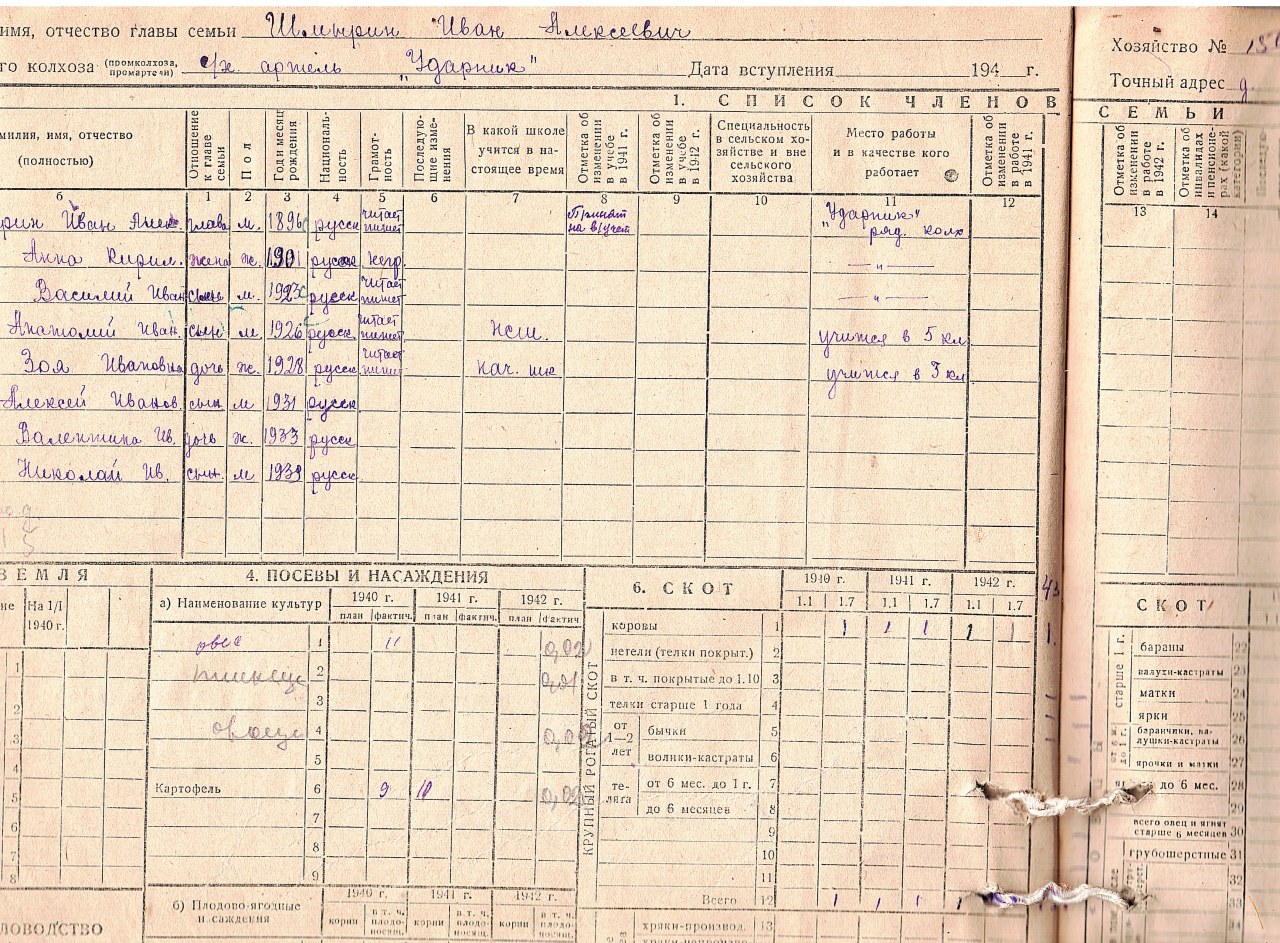 имя, отчество главы семьи Шмырин Иван Алексеевич
го колхоза (промколхоза, промартели) с/х артель „Ударник" Дата вступления 194 г.
Хозяйство №
Точный адрес д.
1. СПИСОК ЧЛЕНОВ
СЕМЬИ
милия, имя, отчество (полностью)
Отношение к главе семьи
Пол
Год и месяц рождения
Националь- ность
Грамот- ность
Последую- щие изме- нения
В какой школе учится в на- стоящее время
Отметка об изменении в учебе в 1941 г.
Отметка об изменении в учебе в 1942 г.
Специальность в сельском хо- зяйстве и вне сельского хозяйства
Место работы и в качестве кого работает
Отметка об изменении в работе в 1941 г.
Отметка об изменении в работе в 1942 г.
Отметка об инвалидах и пенсионе- рах (какой категории)
б 1 2 3 4 5 6 7 8 9 10 11 12 13 14
рин Иван Алек. глава м. 1896 русск читает пишет Принят на в/учет „Ударник" ряд. колх
Анна Кирил. жена ж. 1901 русск негр. — „ —
Василий Иван сын м. 1923 русск читает пишет — „ —
Анатолий Иван. сын м 1926 русск читает пишет нсш. учится в 5 кл.
Зоя Ивановна дочь ж. 1928 русск читает пишет нач. шк учится в 3 кл
Алексей Иванов. сын м 1931 русск
Валентина Ив. дочь ж. 1933 русск
Николай Ив. сын. м 1939 русск
ЗЕМЛЯ
На 1/I 1940 г.
1
2
3
4
5
6
7
8
ЛОВОДСТВО
4. ПОСЕВЫ И НАСАЖДЕНИЯ
а) Наименование культур 1940 г. 1941 г. 1942 г.
план фактич. план фактич. план фактич
овес 1 11 0,02
2
3
4
5
Картофель 6 9 10 0,02
7
8
9
б) Плодово-ягодные насаждения 1940 г. 1941 г. 1942 г.
корни в т. ч. плодо- носящ. корни в т. ч. плодо- носящ. корни в т. ч. плодо- носящ.
6. СКОТ 1940 г. 1941 г. 1942 г.
1.1 1.7 1.1 1.7 1.1 1.7
КРУПНЫЙ РОГАТЫЙ СКОТ
коровы 1 1 1 1 1 1
нетели (телки покрыт.) 2
в т. ч. покрытые до 1.10 3
телки старше 1 года 4
от 1—2 лет бычки 5
волики-кастраты 6
те- лята от 6 мес. до 1 г. 7
до 6 месяцев 8
9
10
11
Всего 12 1 1 1 1
хряки-производ. 13
СКОТ
старше 1 г.
бараны 22
валухи-кастраты 23
матки 24
ярки 25
баранчики, ва- лушки-кастраты 26
ярочки и матки 27
до 6 мес. 28
29
всего овец и ягнят старше 6 месяцев 30
грубошерстные 31
32
33